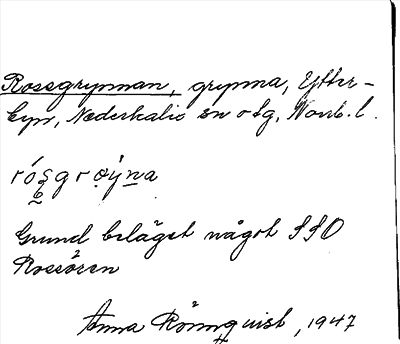 Rossgrynnan, grynna, Ytter-
byn, Nederkalix sn o tg, Norrb. l.
rósgrøýna
Grund beläget något SSO
Rossören
Anna Rönnquist, 1947